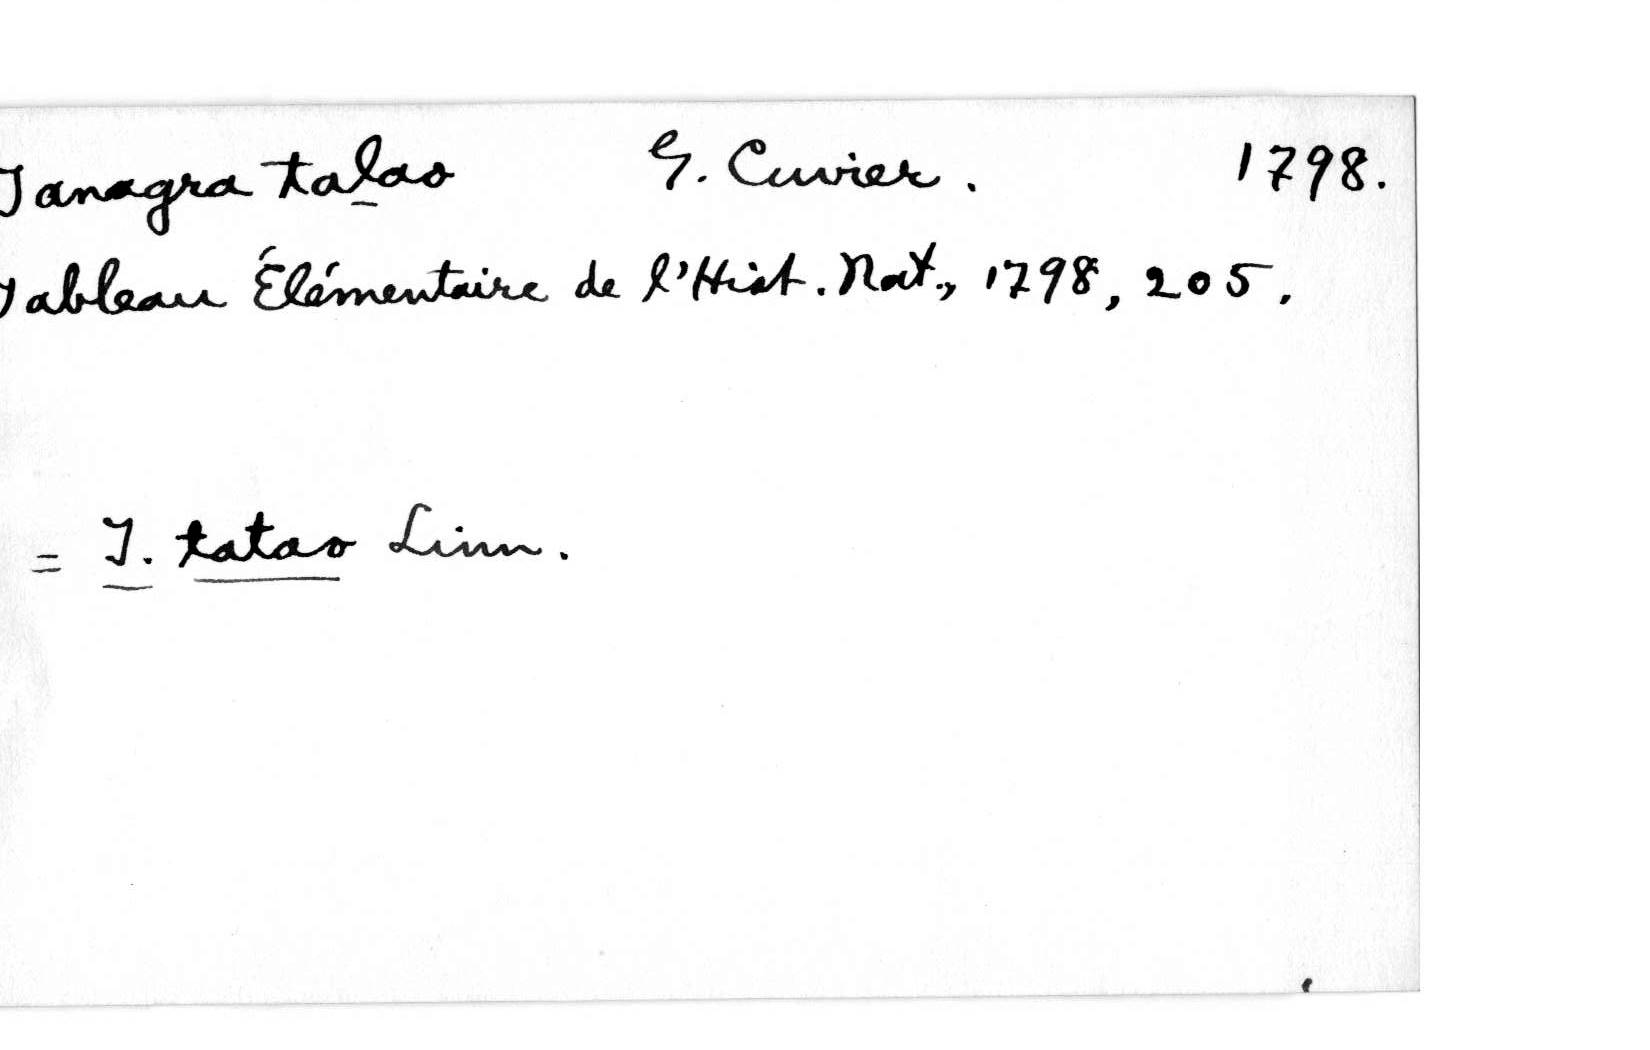 Tanagra talao G. Cuvier. 1798.
Tableau Élémentaire de l'Hist. Nat., 1798, 205.
= T. tatao Linn.